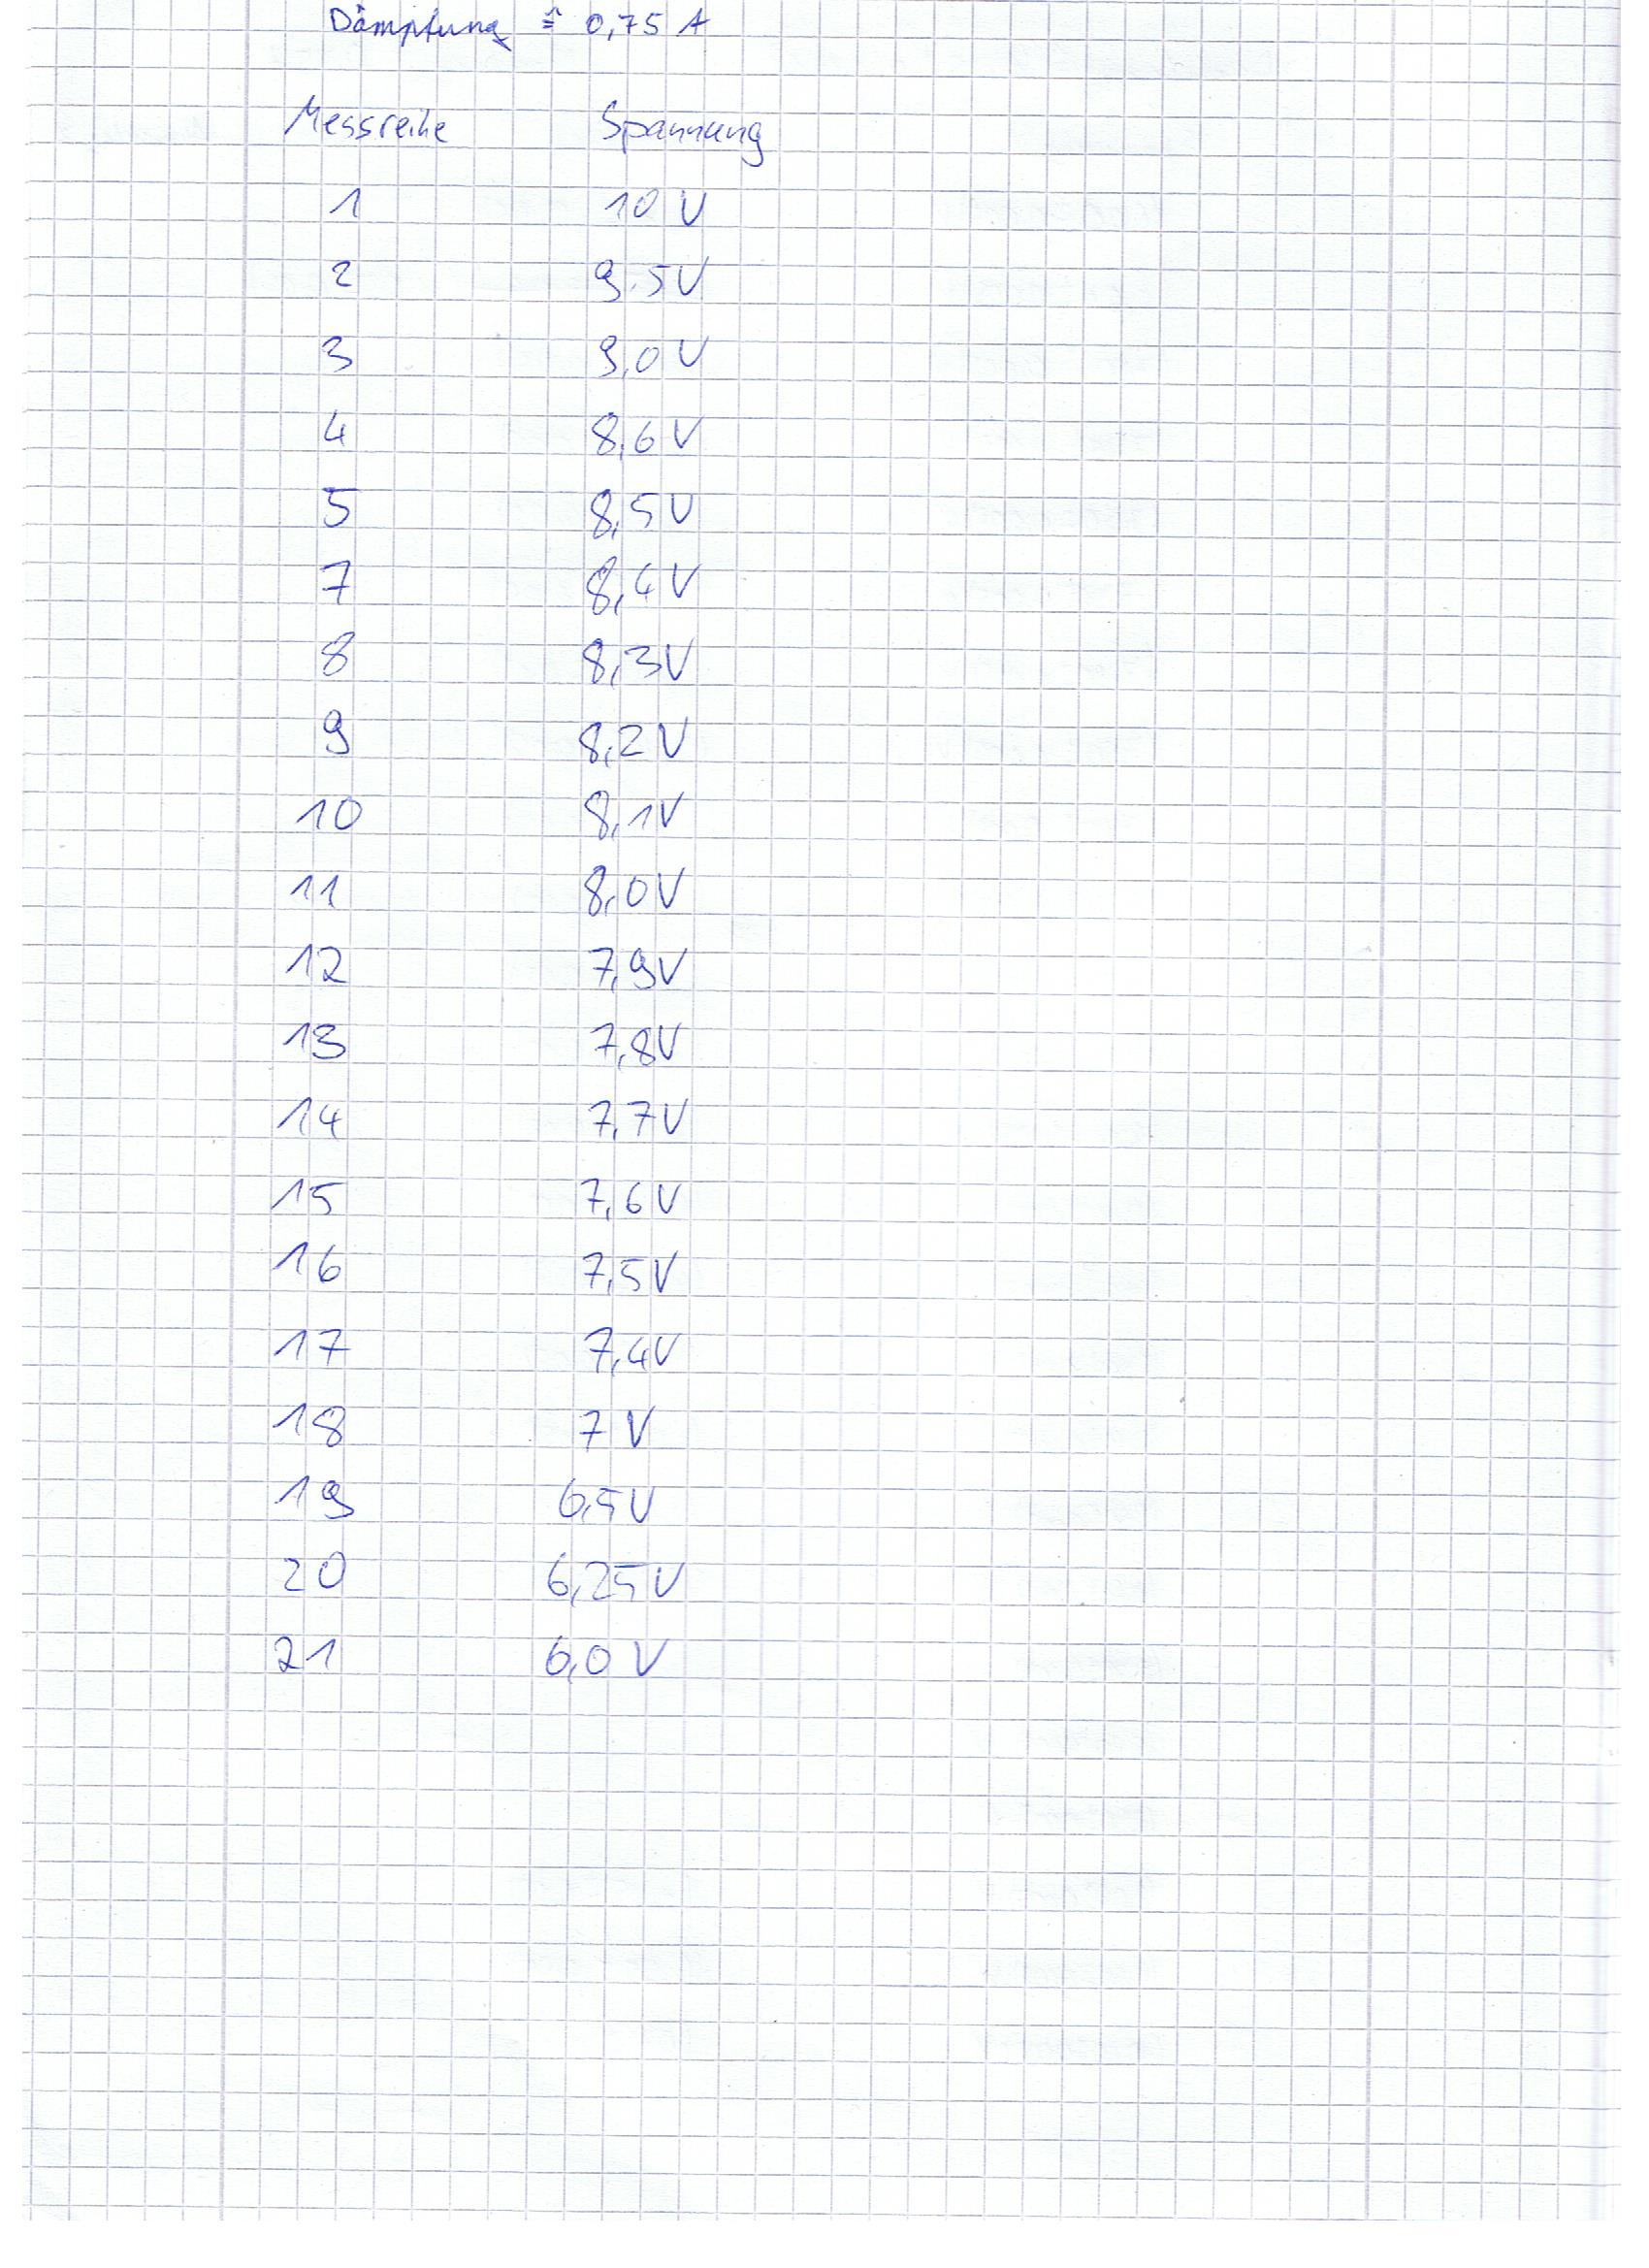 Dämpfung ≙ 0,75 A
Messreihe Spannung
1 10 V
2 9.5V
3 9,0 V
4 8,6 V
5 8,5 V
7 8,4 V
8 8,3V
9 8,2 V
10 8,1V
11 8,0V
12 7,9V
13 7,8V
14 7,7V
15 7,6 V
16 7,5V
17 7,4V
18 7 V
19 6,5V
20 6,25V
21 6,0 V